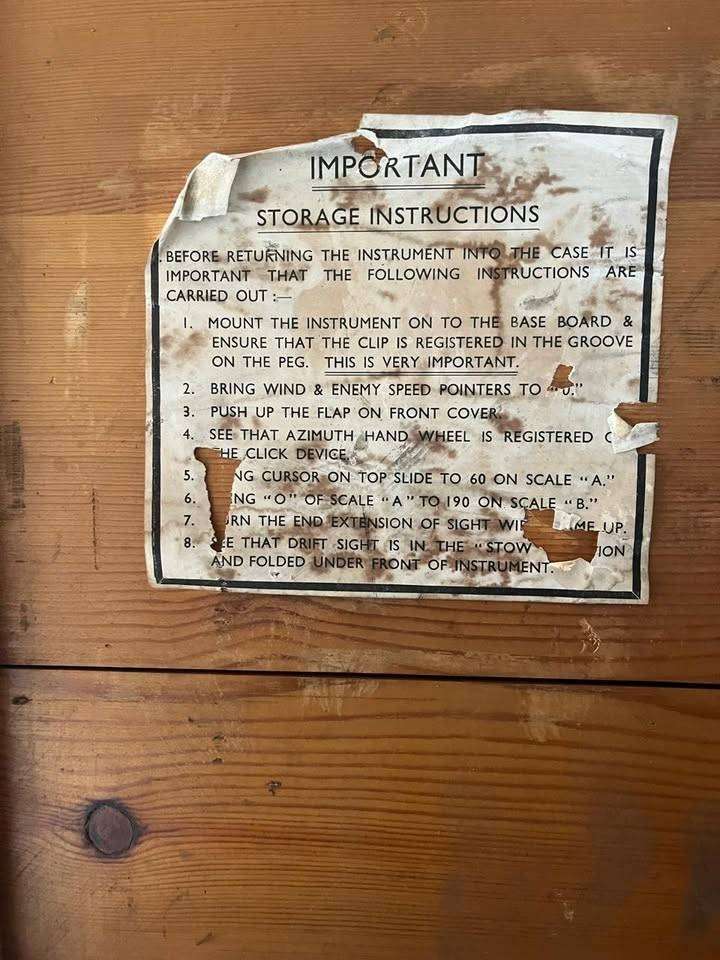 IMPORTANT
STORAGE INSTRUCTIONS
BEFORE RETURNING THE INSTRUMENT INTO THE CASE IT IS
IMPORTANT THAT THE FOLLOWING INSTRUCTIONS ARE
CARRIED OUT :—
1. MOUNT THE INSTRUMENT ON TO THE BASE BOARD &
ENSURE THAT THE CLIP IS REGISTERED IN THE GROOVE
ON THE PEG. THIS IS VERY IMPORTANT.
2. BRING WIND & ENEMY SPEED POINTERS TO
3. PUSH UP THE FLAP ON FRONT COVER.
4. SEE THAT AZIMUTH HAND WHEEL IS REGISTERED
CLICK DEVICE.
5. CURSOR ON TOP SLIDE TO 60 ON SCALE "A."
6. "O" OF SCALE "A" TO 190 ON SCALE "B."
7. THE END EXTENSION OF SIGHT UP.
8. SEE THAT DRIFT SIGHT IS IN THE "STOW
AND FOLDED UNDER FRONT OF INSTRUMENT.